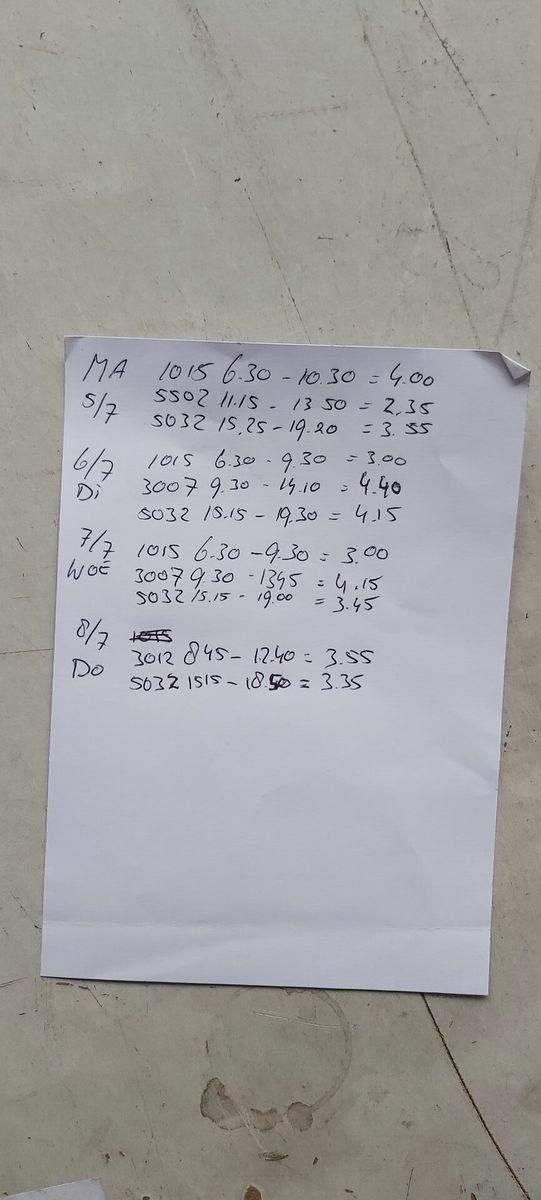 MA 1015 6.30 - 10.30 = 4.00
5/7 5502 11.15 - 13 50 = 2.35
5032 15.25 - 19.20 = 3.55
6/7 1015 6.30 - 9.30 = 3.00
Di 3007 9.30 - 14.10 = 4.40
5032 15.15 - 19.30 = 4.15
7/7 1015 6.30 - 9.30 = 3.00
WOE 3007 9.30 - 1345 = 4.15
5032 15.15 - 19.00 = 3.45
8/7 1015
Do 3012 845 - 12.40 = 3.55
5032 1515 - 18.50 = 3.35